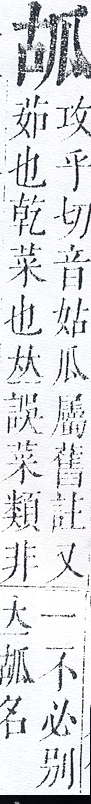 攻乎切音姑瓜屬舊註又
茹也乾菜也𠀤誤菜類非
一不必别
大名